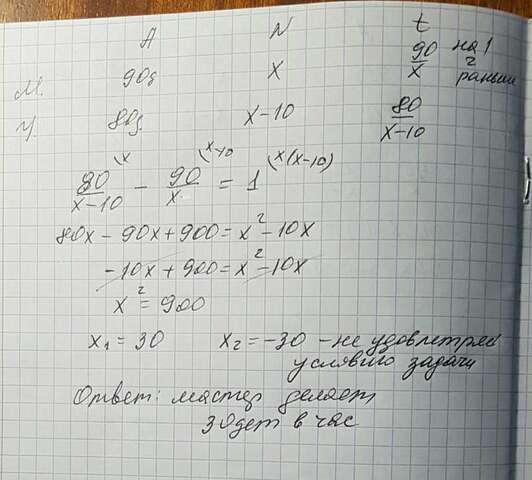 A N t
М. 90д x 90/x на 1 ч раньше
У. 80д. x-10 80/x-10
80/x-10 - 90/x = 1
80x - 90x + 900 = x² - 10x
-10x + 900 = x² - 10x
x² = 900
x₁ = 30 x₂ = -30 - не удовлетряет
условию задачи
Ответ: мастер делает
30 дет в час